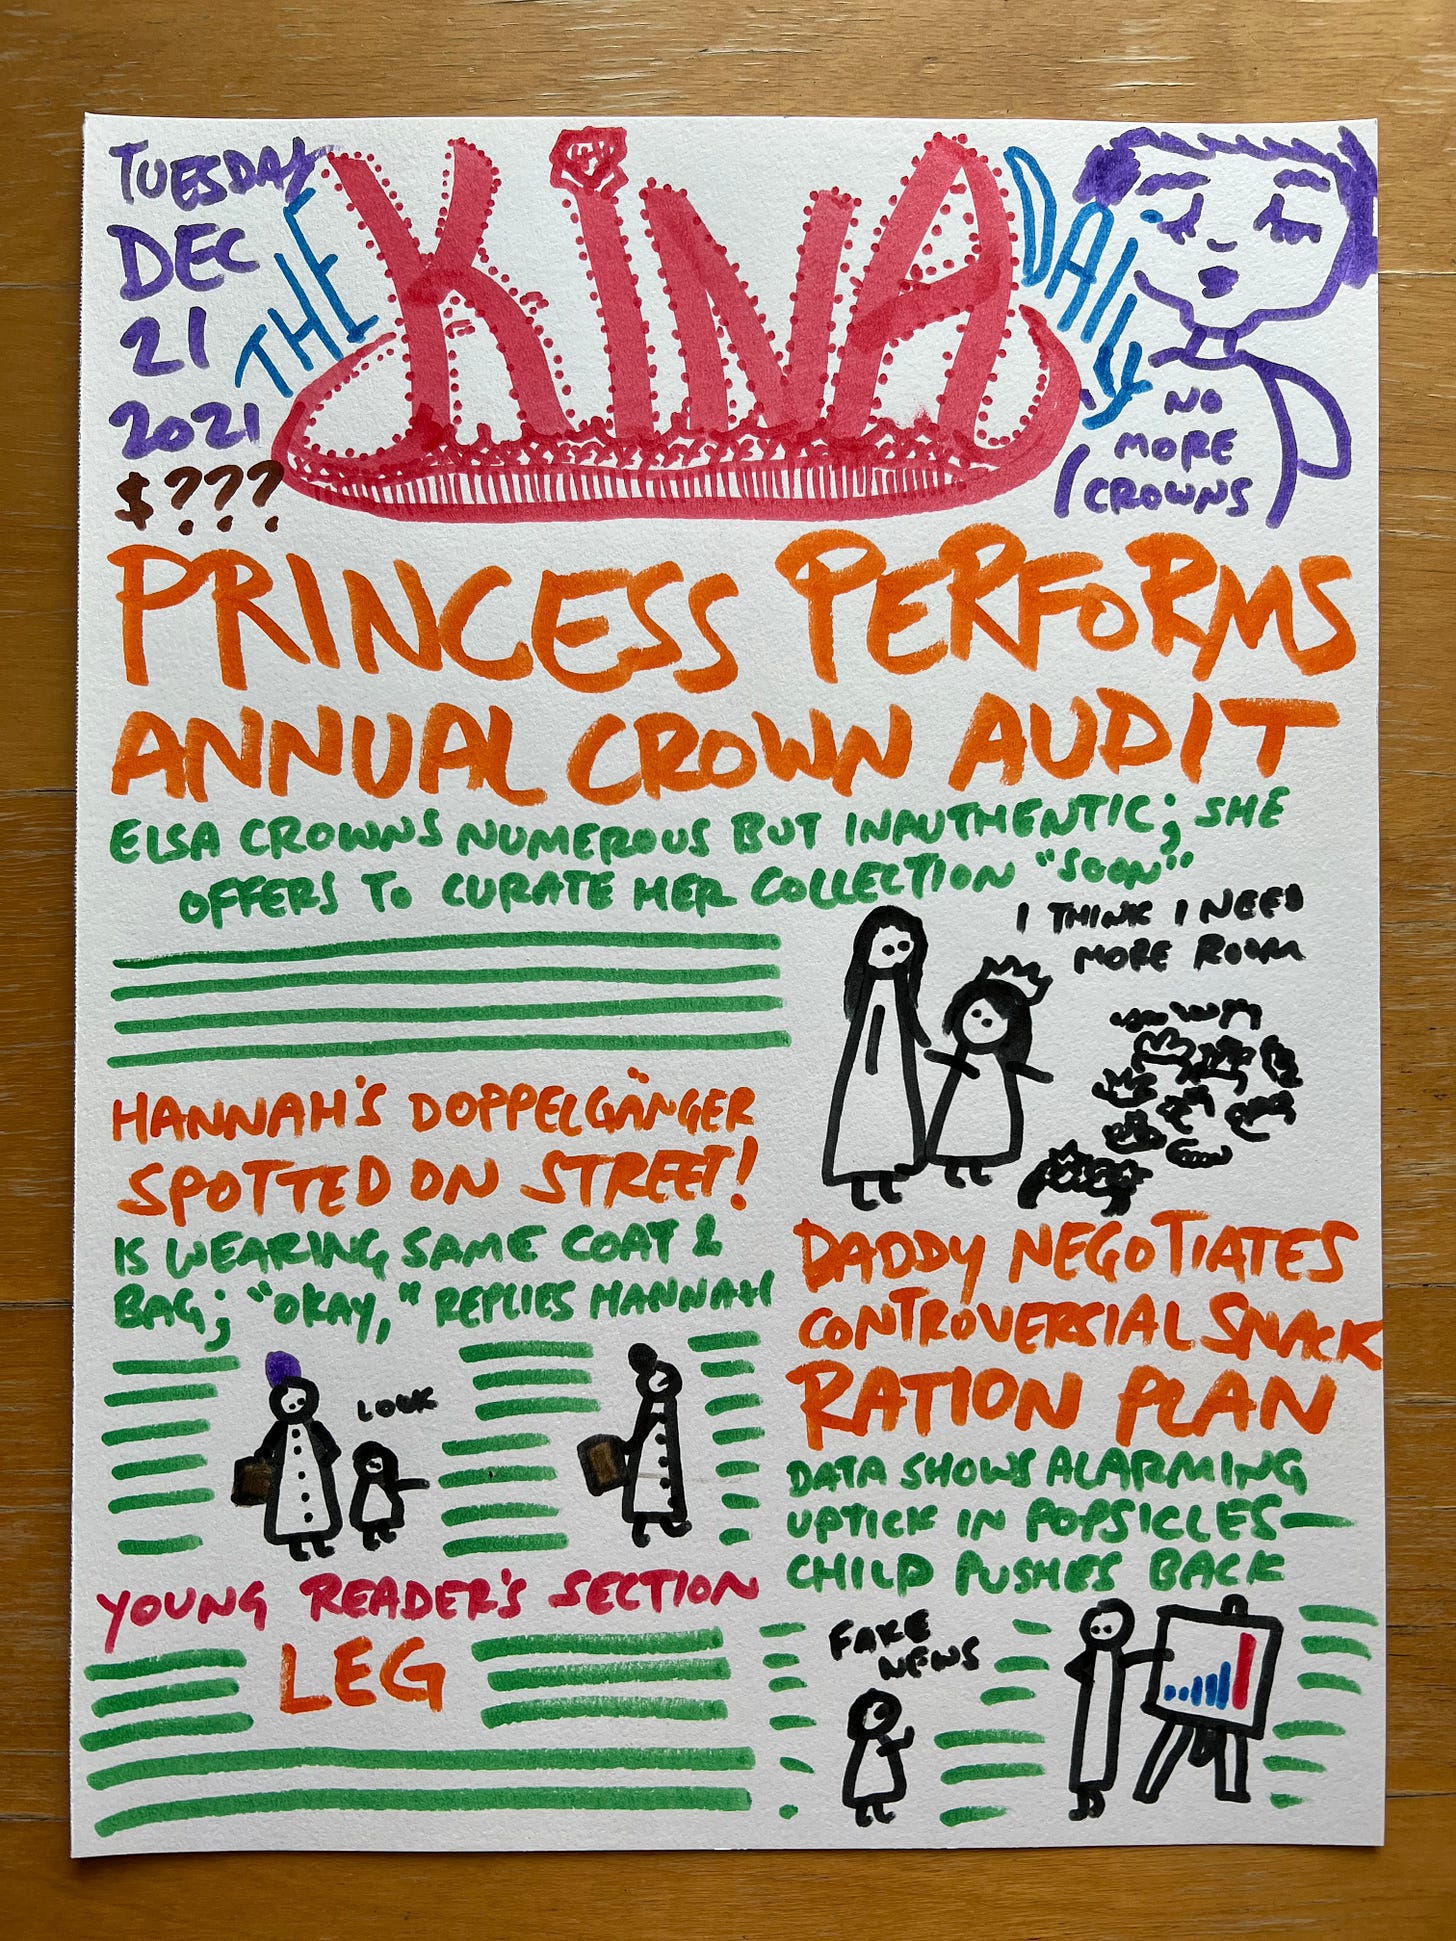 TUESDAY
DEC
21
2021
$???
THE KINA DAILY
NO
MORE
CROWNS
PRINCESS PERFORMS
ANNUAL CROWN AUDIT
ELSA CROWNS NUMEROUS BUT INAUTHENTIC; SHE
OFFERS TO CURATE HER COLLECTION "SOON"
I THINK I NEED
MORE ROOM
HANNAH'S DOPPELGÄNGER
SPOTTED ON STREET!
IS WEARING SAME COAT &
BAG; "OKAY," REPLIES HANNAH
LOOK
DADDY NEGOTIATES
CONTROVERSIAL SNACK
RATION PLAN
DATA SHOWS ALARMING
UPTICK IN POPSICLES—
CHILD PUSHES BACK
FAKE
NEWS
YOUNG READER'S SECTION
LEG